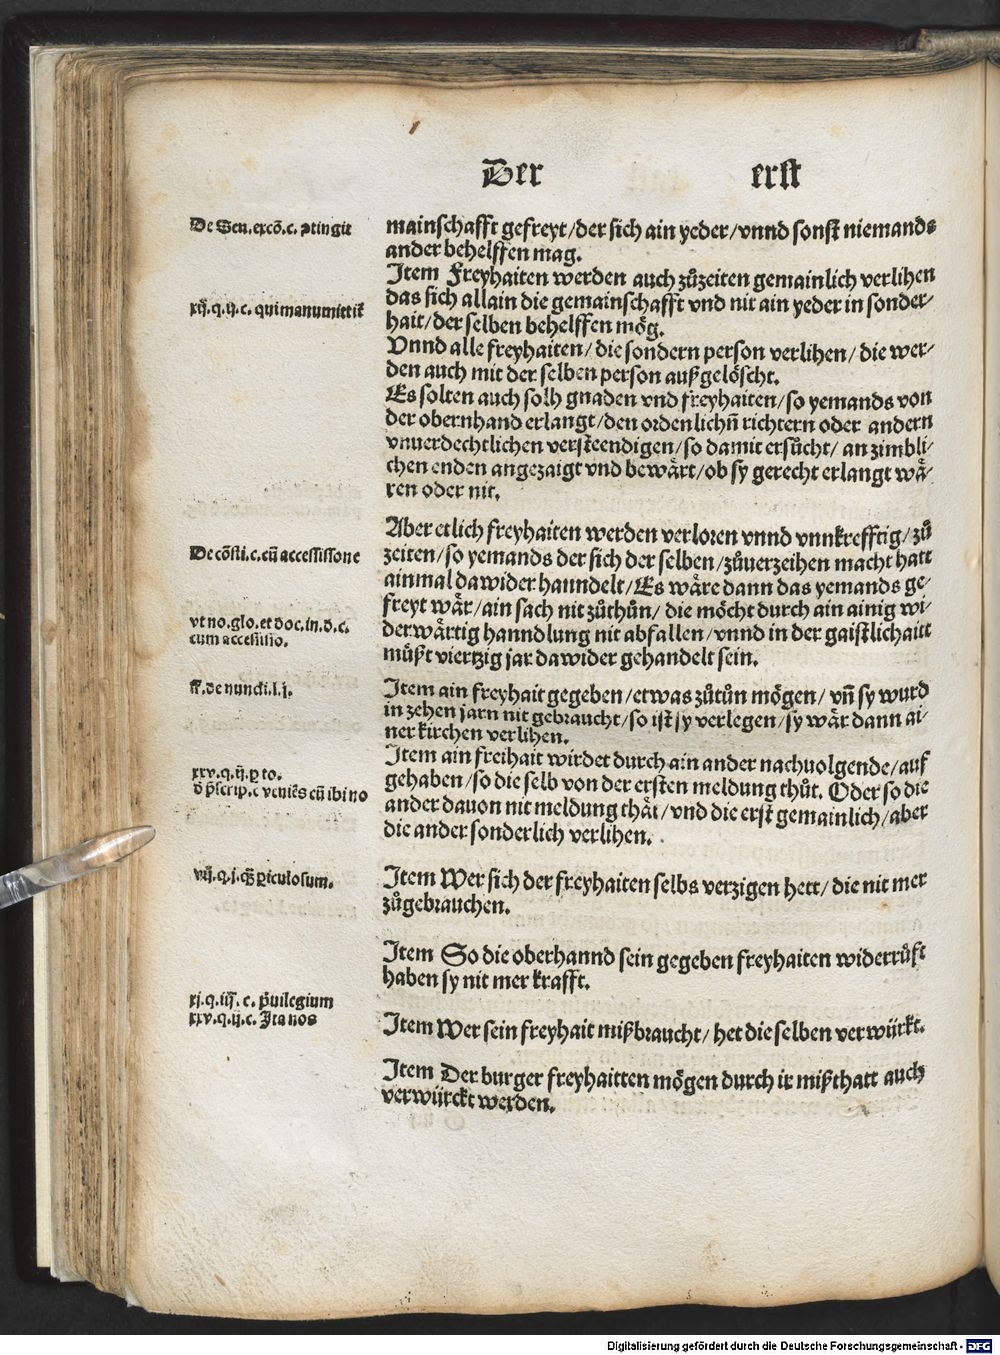 Der erst
De Sen. excõ. c. ptingit
mainschafft gefreyt/der sich ain yeder/vnnd sonst niemands
ander behelffen mag.
Item Freyhaiten werden auch zůzeiten gemainlich verlihen
xij. q. ij. c. qui manumittit
das sich allain die gemainschafft vnd nit ain yeder in sonder-
hait/der selben behelffen mög.
Vnnd alle freyhaiten/die sondern person verlihen/die wer-
den auch mit der selben person außgelöscht.
Es solten auch solh gnaden vnd freyhaiten/so yemands von
der obernhand erlangt/den ordenlichñ richtern oder andern
vnuerdechtlichen versteendigen/so damit ersůcht/an zimbli-
chen enden angezaigt vnd bewärt/ob sy gerecht erlangt wä-
ren oder nit.
Aber etlich freyhaiten werden verloren vnnd vnnkrefftig/zů
De cõsti. c. cũ accessissone
zeiten/so yemands der sich der selben/zůuerzeihen macht hatt
ainmal dawider hanndelt/Es wäre dann das yemands ge-
freyt wär/ain sach nit zůthůn/die möcht durch ain ainig wi-
vt no. glo. et doc. in. d. c.
cum accessisso.
derwärtig hanndlung nit abfallen/vnnd in der gaistlichaitt
můßt viertzig jar dawider gehandelt sein.
ff. de nundi. l. j.
Item ain freyhait gegeben/etwas zůtůn mögen/vñ sy wurd
in zehen jarn nit gebraucht/so ist sy verlegen/sy wär dann ai-
ner kirchen verlihen.
Item ain freihait wirdet durch ain ander nachuolgende/auf
xxv. q. ij. p to.
gehaben/so die selb von der ersten meldung thůt. Oder so die
d p̃scrip. c veniẽs cũ ibi no
ander dauon nit meldung thät/vnd die erst gemainlich/aber
die ander sonderlich verlihen.
vij. q. j. q̃ß piculosum.
Item Wer sich der freyhaiten selbs verzigen hett/die nit mer
zůgebrauchen.
Item So die oberhannd sein gegeben freyhaiten widerrůft
haben sy nit mer krafft.
xj. q. iij. c. p̃uilegium
xxv. q. ij. c. Ita nos
Item Wer sein freyhait mißbraucht/het die selben verwürkt.
Item Der burger freyhaitten mögen durch ir mißthatt auch
verwürckt werden.
Digitalisierung gefördert durch die Deutsche Forschungsgemeinschaft - DFG